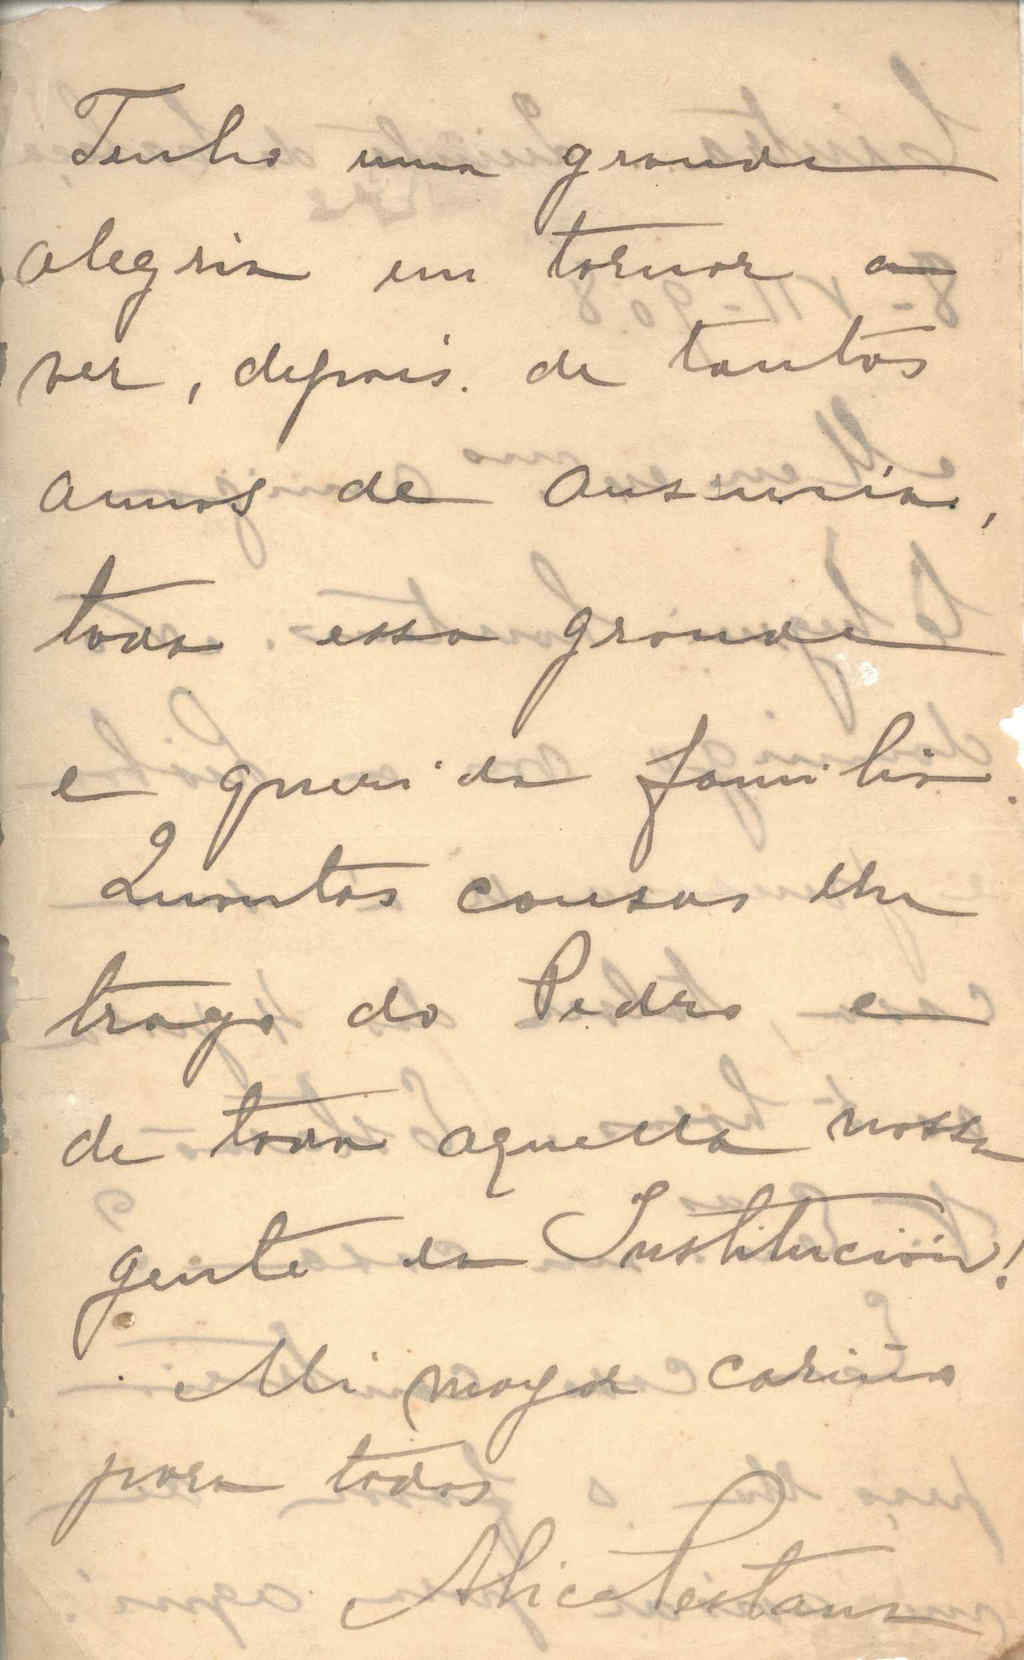 Tenho uma grande
alegria em tornar a
ver, depois de tantos
annos de ausencia,
toda essa grande
e querida familia.
Quantas cousas lhe
trago do Pedro e
de toda aquella nossa
gente da Institución!
Mi mayor cariño
para todos
Alice Pestana